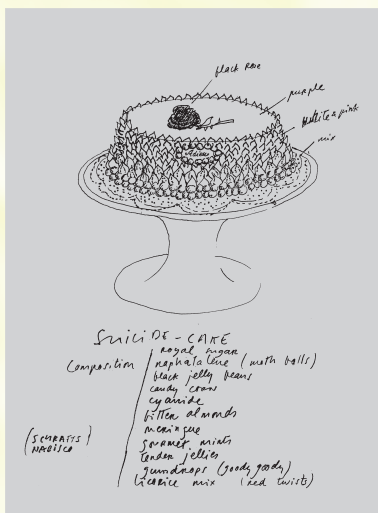 black rose
purple
white & pink
mix
SUICIDE-CAKE
Composition
royal sugar
naphatalene (moth balls)
black jelly beans
candy corn
cyanide
bitter almonds
meringue
gourmet mints
tender jellies
gumdrops (goody goody)
licorice mix (red twists)
(SCHRAFFTS)
NABISCO